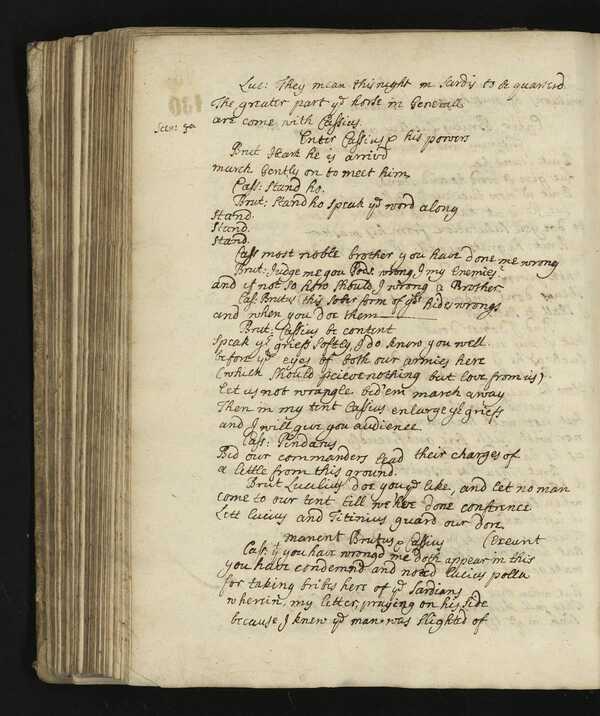 Luc: They mean this night in Sardis to be quarterd
The greater part ye horse in Generall
are come with Cassius.
Scen: 3a
Enter Cassius & his powers
Brut Heark he is arrivd
march gently on to meet him
Cass: Stand ho.
Brut: Stand ho speak ye word along
Stand.
Stand.
Stand.
Cass most noble brother you have done me wrong
Brut: Judge me you Gods, wrong I my Enemies
and if not so how should I wrong a Brother
Cas. Brutus this sober form of yrs hides wrongs
and when you doe them
Brut: Cassius be content
Speak yr griefs softly, I do know you well
before ye eyes of both our armies here
(which should perceive nothing but love from us)
Let us not wrangle bid'em march away
Then in my tent Cassius enlarge yr griefs
and I will give you audience.
Cass: Pindarus
Bid our commanders lead their charges of
a little from this ground.
Brut Lucilius doe you ye like, and let no man
come to our tent till we have done confrence
Lett Lucius and Titinius guard our dore
manent Brutus & Cassius (Exeunt
Cass: yt you have wrongd me doth appear in this
you have condemnd and noted Lucius pella
for taking bribes here of ye Sardians
wherein, my letter, praying on his side
because I knew ye man was slighted of